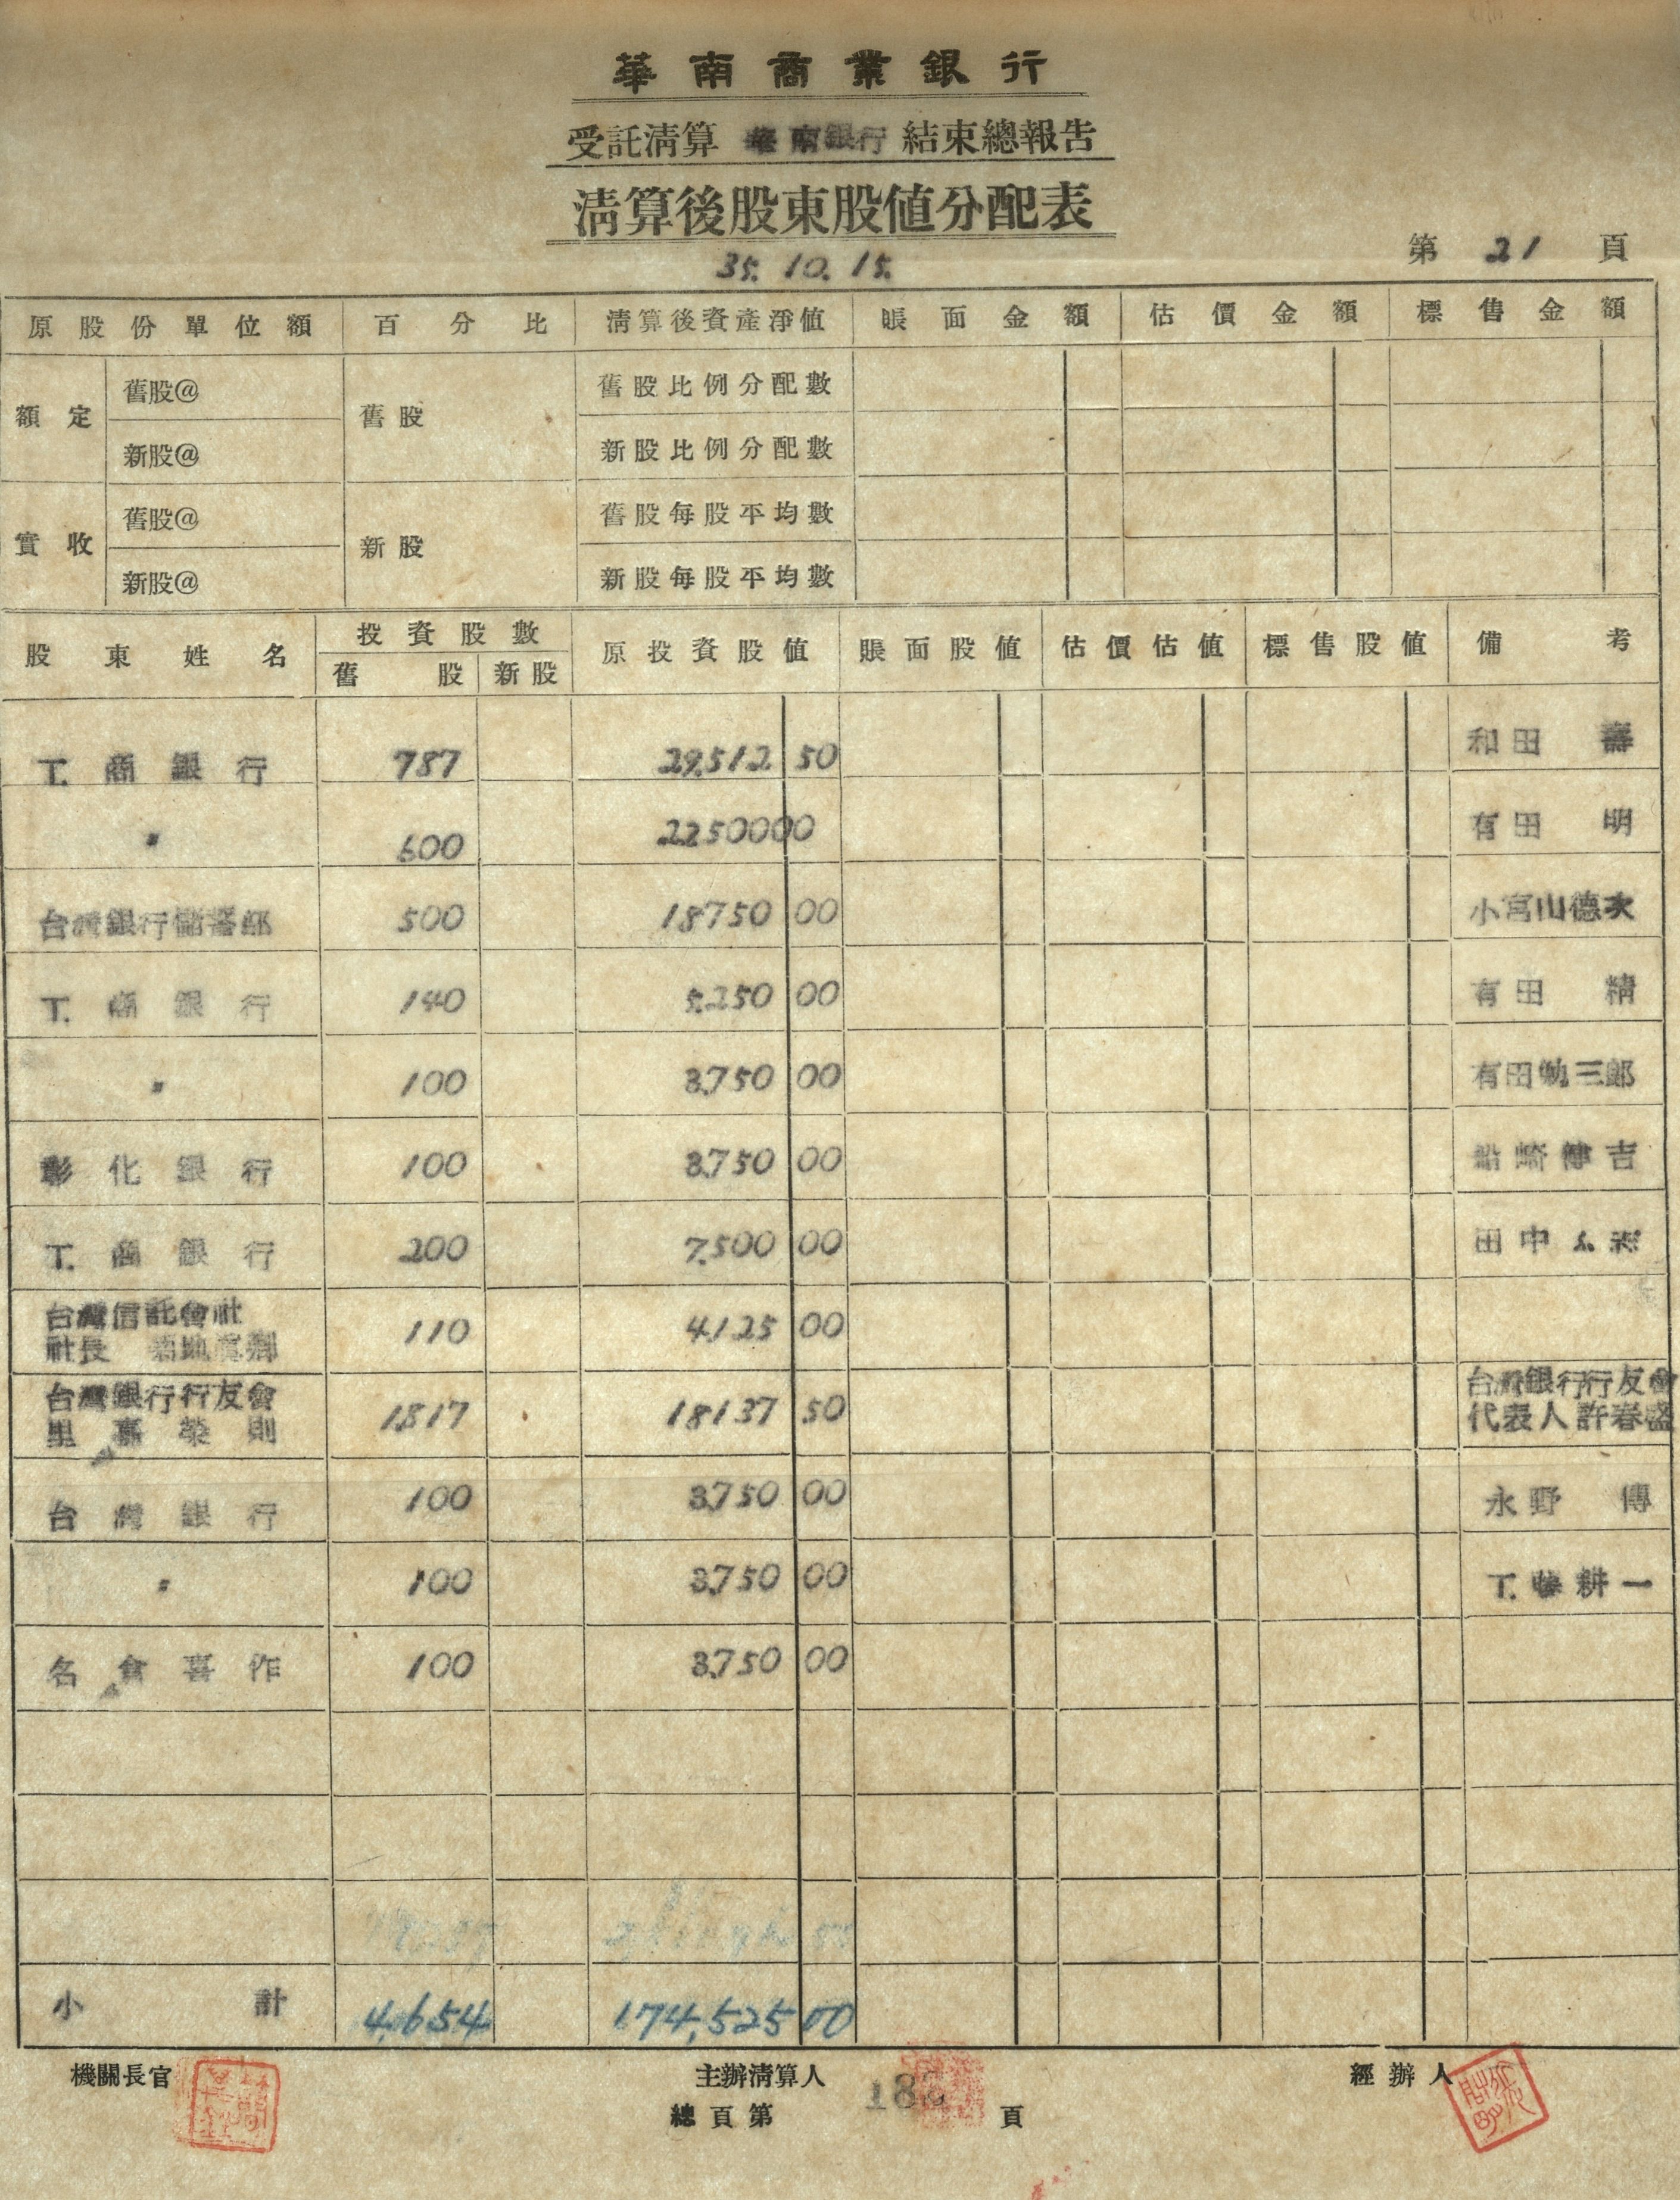 華南商業銀行
受託清算 華南銀行 結束總報告
清算後股東股值分配表
35. 10. 15.
第 21 頁
原股份單位額 百分比 清算後資產淨值 賬面金額 估價金額 標售金額
額定 舊股@ 舊股 舊股比例分配數
新股@ 新股比例分配數
實收 舊股@ 新股 舊股每股平均數
新股@ 新股每股平均數
股東姓名 投資股數 原投資股值 賬面股值 估價估值 標售股值 備考
舊股 新股
工商銀行 787 29,512 50 和田 壽
〃 600 22,500 00 有田 明
台灣銀行儲蓄部 500 18750 00 小宮山德次
工商銀行 140 5,250 00 有田 精
〃 100 3,750 00 有田勉三郎
彰化銀行 100 3,750 00 船崎傳吉
工商銀行 200 7,500 00 田中
台灣信託會社
社長 110 4,125 00
台灣銀行行友會 台灣銀行行友會
里 榮則 1,817 68137 50 代表人許春盛
台灣銀行 100 3,750 00 永野 傳
〃 100 3,750 00 工藤耕一
名倉喜作 100 3,750 00
小計 4,654 174,525 00
機關長官 主辦清算人 經辦人
總頁第 18 頁